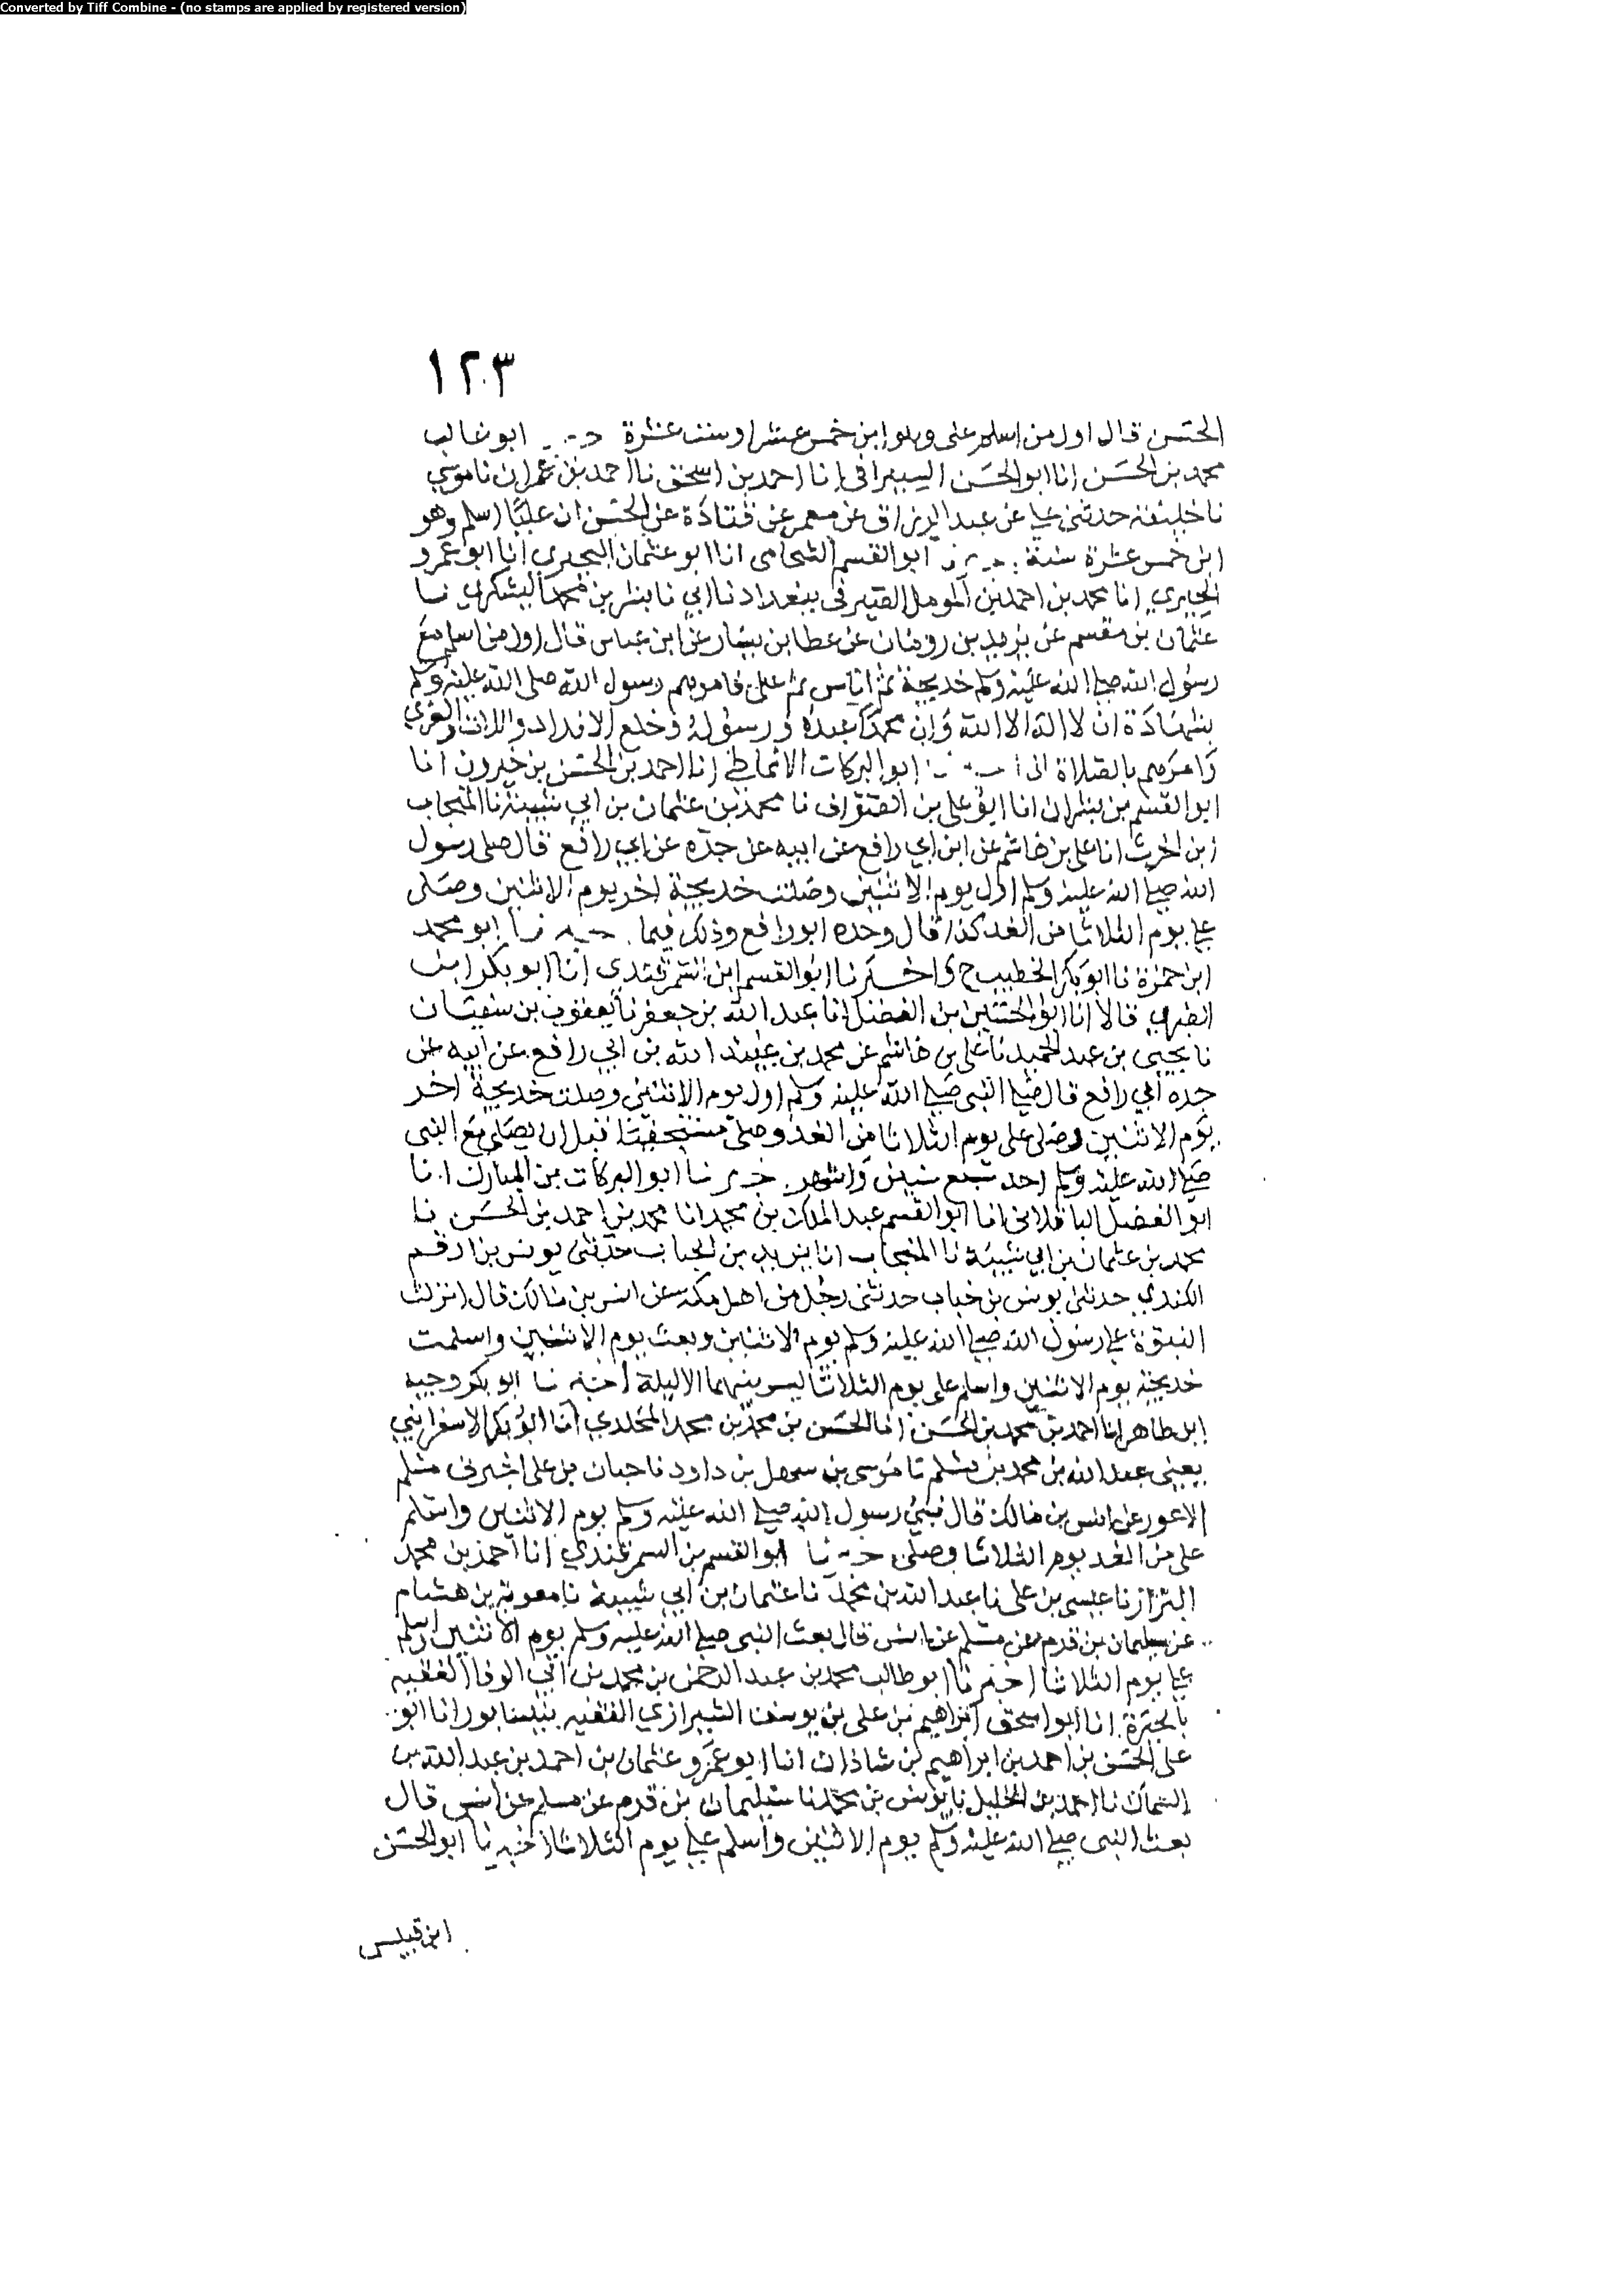 Converted by Tiff Combine - (no stamps are applied by registered version)
١٢٣
الحسن قال اول من اسلم على وهو ابن خمس عشر او ست عشرة ابو غالب
محمد بن الحسن انا ابو الحسن السيرافى انا احمد بن اسحق نا احمد بن عمران نا موسي
نا خليفة حدثنى علي عن عبد الرزاق عن معمر عن قتادة عن الحسن ان عليا اسلم وهو
ابن خمس عشرة سنة ابو القسم الشحامى انا ابو عثمان البحيري انا ابو عمرو
الحيري انا محمد بن احمد بن المومل الصيرفى ببغداد نا ابي نا بشر بن محمد اليشكري نا
عثمان بن مقسم عن يزيد بن رومان عن عطا بن يسار عن ابن عباس قال اول من اسلم مع
رسول الله صلي الله عليه وسلم خديجة ثم اناس ثم على فامرهم رسول الله صلى الله عليه وسلم
بشهادة ان لا اله الا الله وان محمدا عبده ورسوله وخلع الانداد واللات والعزي
وامرهم بالصلاة ابو البركات الانماطي انا احمد بن الحسن بن خيرون انا
ابو القسم بن بشران انا ابو على بن الصواف نا محمد بن عثمان بن ابي شيبة نا المنجاب
ابن الحرث انا على بن هاشم عن ابن ابي رافع عن ابيه عن جده عن ابي رافع قال صلى رسول
الله صلي الله عليه وسلم اول يوم الاثنين وصلت خديجة اخر يوم الاثنين وصلى
علي يوم الثلاثا من الغد كذا قال وحده ابو رافع وذلك فيما ابو محمد
ابن حمزة نا ابو بكر الخطيب ح واخبرنا ابو القسم ابن السمرقندي انا ابو بكر ابن
الطبري قالا انا ابو الحسين بن الفضل انا عبد الله بن جعفر نا يعقوب بن سفيان
نا يحيى بن عبد الحميد نا على بن هاشم عن محمد بن عبيد الله بن ابي رافع عن ابيه عن
جده ابي رافع قال صلي النبى صلي الله عليه وسلم اول يوم الاثنين وصلت خديجة اخر
يوم الاثنين وصلى على يوم الثلاثا من الغد وصلى مستخفيا قبل ان يصلى مع النبى
صلي الله عليه وسلم احد سبع سنين واشهر نا ابو البركات بن المبارك انا
ابو الفضل الباقلانى انا ابو القسم عبد الملك بن محمد انا محمد بن احمد بن الحسن نا
محمد بن عثمان بن ابي شيبة نا المنجاب انا يزيد بن الحباب حدثنى يونس بن ارقم
الكندي حدثنى يونس بن خباب حدثنى رجل من اهل مكة عن انس بن مالك قال انزلت
النبوة علي رسول الله صلي الله عليه وسلم يوم الاثنين وبعث يوم الاثنين واسلمت
خديجة يوم الاثنين واسلم على يوم الثلاثا ليس بينهما الا ليلة اخبرنا ابو بكر وجيه
ابن طاهر انا احمد بن محمد بن الحسن انا الحسن بن محمد بن محمد المخلدي انا ابو بكر الاسفراينى
يعنى عبد الله بن محمد بن مسلم نا موسى بن سهل بن داود نا حبان بن على اخبرنى مسلم
الاعور عن انس بن مالك قال نبئ رسول الله صلي الله عليه وسلم يوم الاثنين واسلم
على من الغد يوم الثلاثا وصلى ابو القسم بن السمرقندي انا احمد بن محمد
البزاز نا عيسى بن على نا عبد الله بن محمد نا عثمان بن ابي شيبة نا معوية بن هشام
عن سليمان بن قرم عن مسلم عن انس قال بعث النبى صلي الله عليه وسلم يوم الاثنين واسلم
علي يوم الثلاثا اخبرنا ابو طالب محمد بن عبد الرحمن بن محمد بن ابي الوفا الفقيه
بالحيرة انا ابو اسحق ابراهيم بن على بن يوسف الشيرازي الفقيه بنيسابور انا ابو
على الحسن بن احمد بن ابراهيم بن شاذان انا ابو عمرو عثمان بن احمد بن عبد الله بن
السماك نا احمد بن الخليل نا يونس بن محمد نا سليمان بن قرم عن مسلم عن انس قال
بعث النبى صلي الله عليه وسلم يوم الاثنين واسلم علي يوم الثلاثا اخبرنا ابو الحسن
ابن قبيس